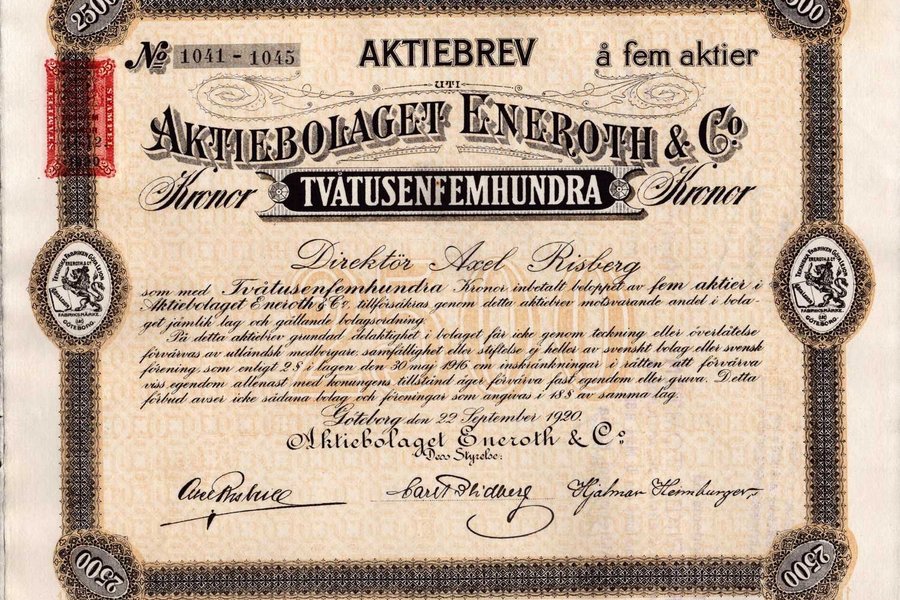 2500
2500
No 1041-1045
AKTIEBREV
å fem aktier
UTI
AKTIEBOLAGET ENEROTH & Co.
Kronor TVÅTUSENFEMHUNDRA Kronor
Direktör Axel Risberg
som med Tvåtusenfemhundra Kronor inbetalt beloppet av fem aktier i
Aktiebolaget Eneroth & Co, tillförsäkras genom detta aktiebrev motsvarande andel i bola-
get jämlik lag och gällande bolagsordning.
På detta aktiebrev grundad delaktighet i bolaget får icke genom teckning eller överlåtelse
förvärvas av utländsk medborgare, samfällighet eller stiftelse ej heller av svenskt bolag eller svensk
förening, som enligt 2§ i lagen den 30 maj 1916 om inskränkningar i rätten att förvärva
viss egendom allenast med konungens tillstånd äger förvärva fast egendom eller gruva. Detta
förbud avser icke sådana bolag och föreningar som angivas i 18§ av samma lag.
Göteborg den 22 September 1920.
Aktiebolaget Eneroth & Co
Dess Styrelse:
Axel Risberg
Carl Hjalmar Heimburger
STÄMPEL
ENEROTH & Co
FABRIKSMÄRKE
GÖTEBORG.
ENEROTH & Co
FABRIKSMÄRKE
GÖTEBORG.
2500
2500